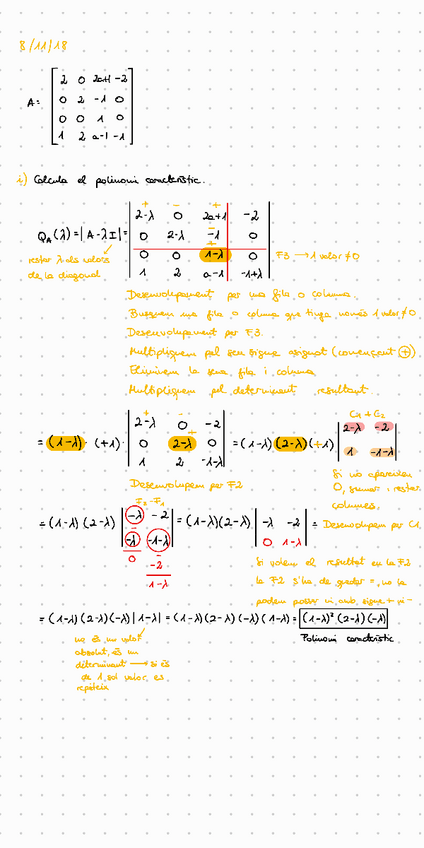 8/11/18
A = [ 2 0 2a+1 -2
0 2 -1 0
0 0 1 0
1 2 a-1 -1 ]
i) Calcula el polinomi característic.
+ - + -
2-λ 0 2a+1 -2
Q_A(λ) = |A-λI| = 0 2-λ -1 0
0 0 1-λ 0 F3 → 1 valor ≠0
1 2 a-1 -1+λ
restar λ als valors
de la diagonal
Desenvolupament per una fila o columna.
Busquem una fila o columna que tinga només 1 valor ≠0
Desenvolupament per F3.
Multipliquem pel seu signe assignat (començant +).
Eliminem la seua fila i columna
Multipliquem pel determinant resultant.
C1 + C2
+ -
2-λ 0 -2
= (1-λ) · (+1) · 0 2-λ 0 = (1-λ) (2-λ) (+1) 2-λ -2
1 2 -1-λ 1 -1-λ
Desenvolupem per F2
Si no apareixen
0, sumar i restar
columnes.
F2 - F1
= (1-λ) (2-λ) -λ -2 = (1-λ) (2-λ) -λ -2 = Desenvolupem per C1
-λ -1-λ 0 1-λ
0 -2
1-λ
Si volem el resultat en la F2
la F2 s'ha de quedar =, no la
podem posar
= (1-λ) (2-λ) (-λ) |1-λ| = (1-λ) (2-λ) (-λ) (1-λ) = (1-λ)² (2-λ) (-λ)
Polinomi característic
no és un valor
absolut, és un
determinant → si és
de 1 sol valor, es